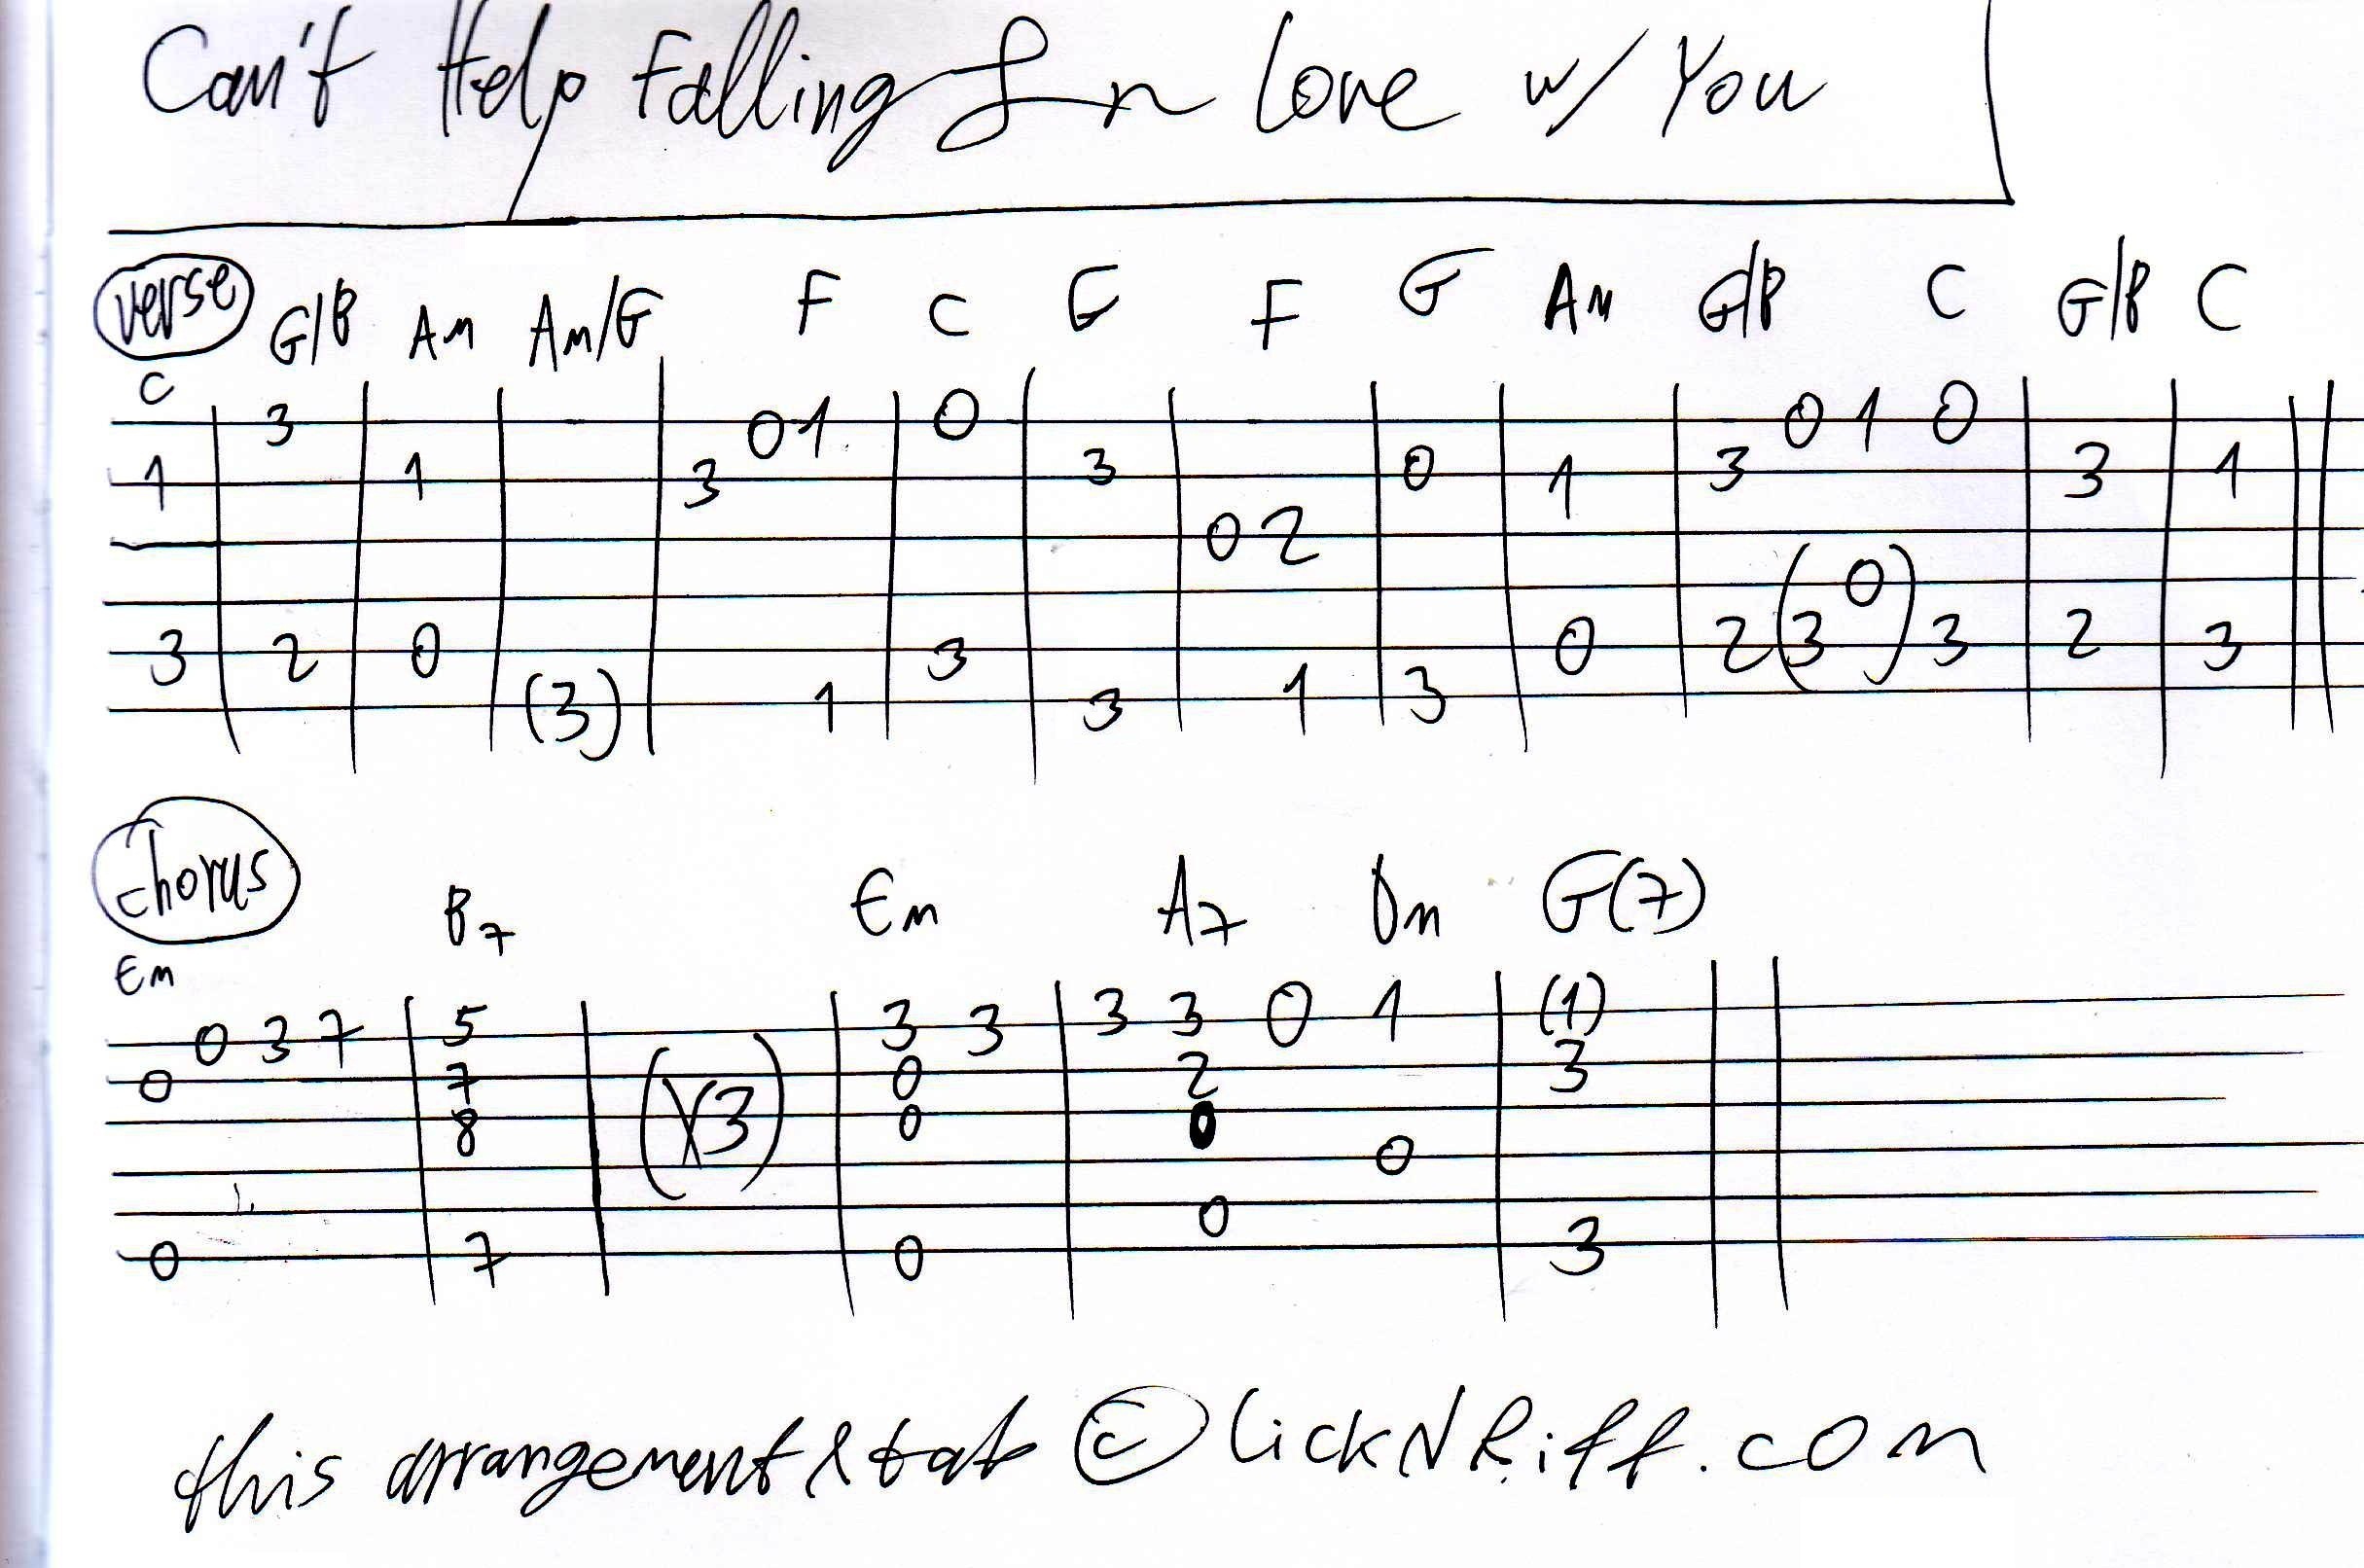 Can't Help Falling In Love w/ You
verse G/B Am Am/G F C G F G Am G/B C G/B C
C
3 0 1 0 0 1 0
1 1 3 3 0 1 3 3 1
0 2
(0)
3 2 0 3 0 2 (3 3 2 3
(3) 1 3 1 3
Chorus B7 Em A7 Dm G(7)
Em
0 3 7 5 3 3 3 3 0 1 (1)
0 7 0 2 3
8 (X3) 0 0
0
0
0 7 0 3
this arrangement & tab © LickNRiff.com